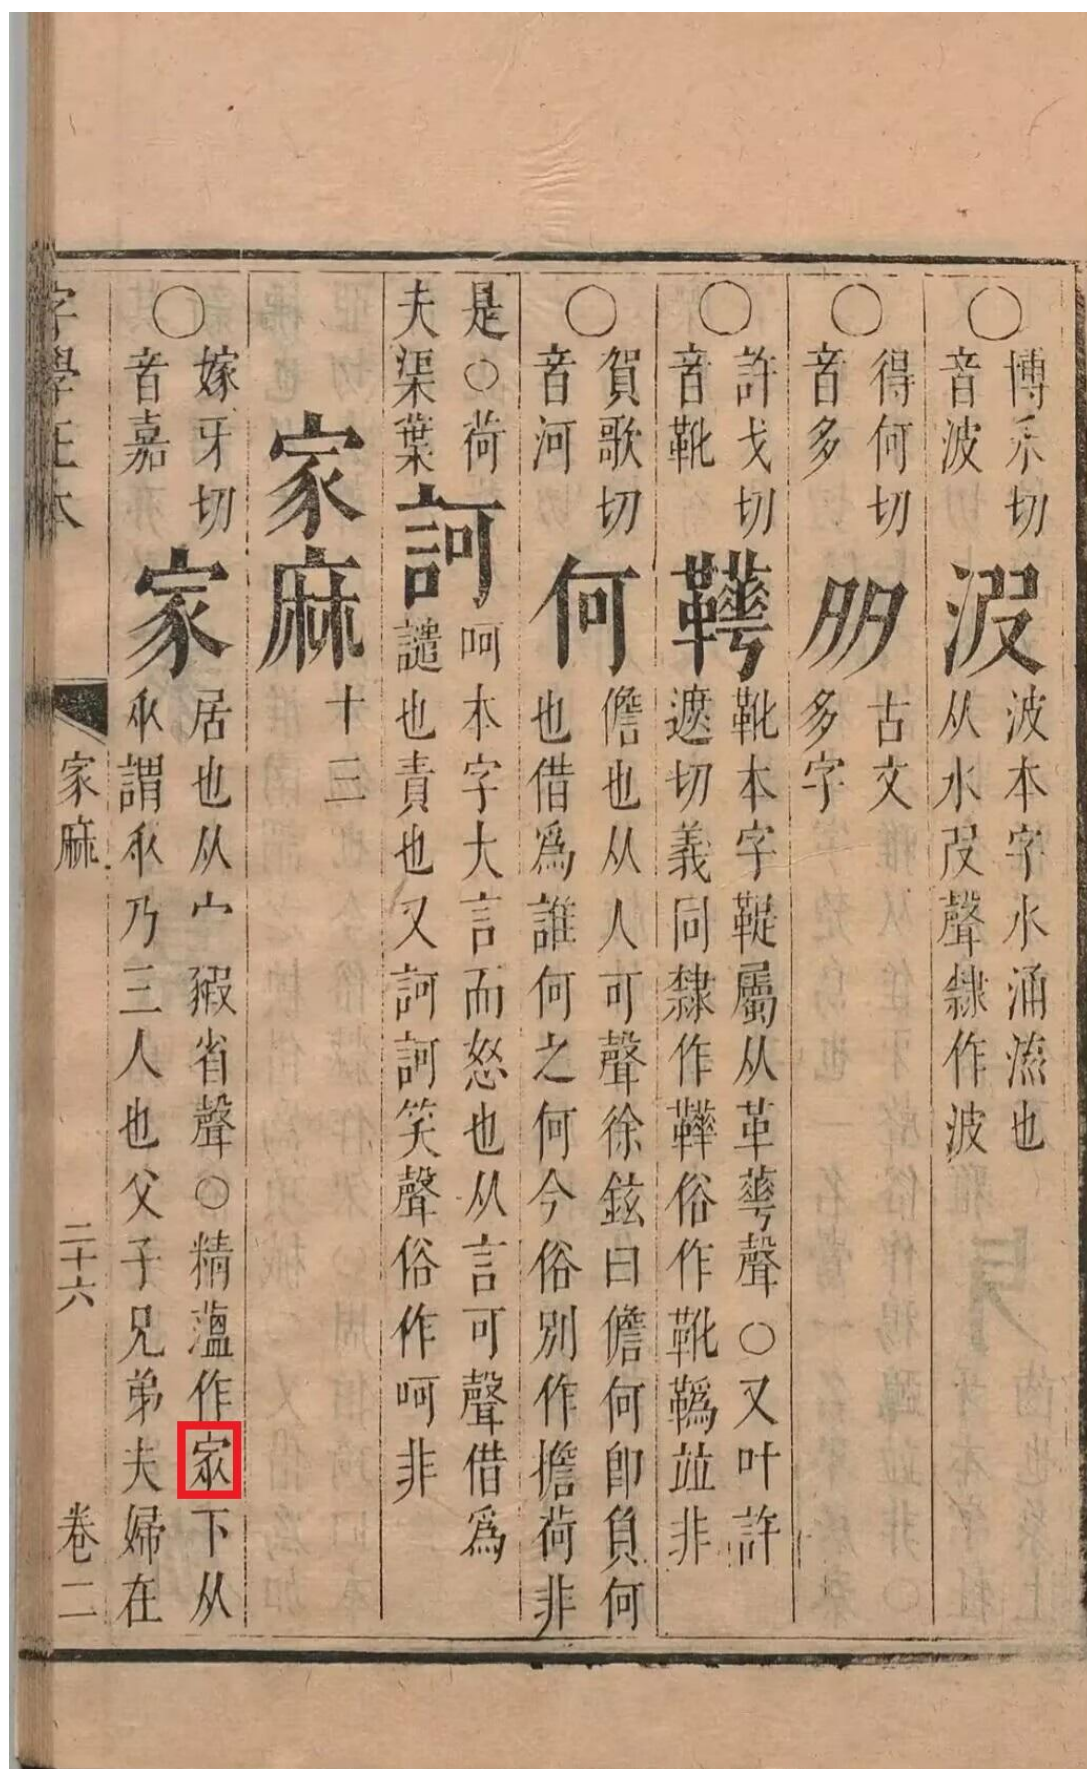 ○
博禾切
音波
波本字水涌㳅也
从水𠬝聲隸作波
○
得何切
音多
𡖇
古文
多字
○
許戈切
音靴
靴本字鞮屬从革蕐聲○又叶許
遮切義同隸作鞾俗作靴並非
○
賀歌切
音河
何
儋也从人可聲徐鉉曰儋何卽負何
也借爲誰何之何今俗別作擔荷非
是○荷
夫渠葉
訶
呵本字大言而怒也从言可聲借爲
譴也責也又訶訶笑聲俗作呵非
家麻
十三
○
嫁牙切
音嘉
家
居也从宀豭省聲○精薀作下从
乑謂乑乃三人也父子兄弟夫婦在
字學正本 家麻 二十六 卷二